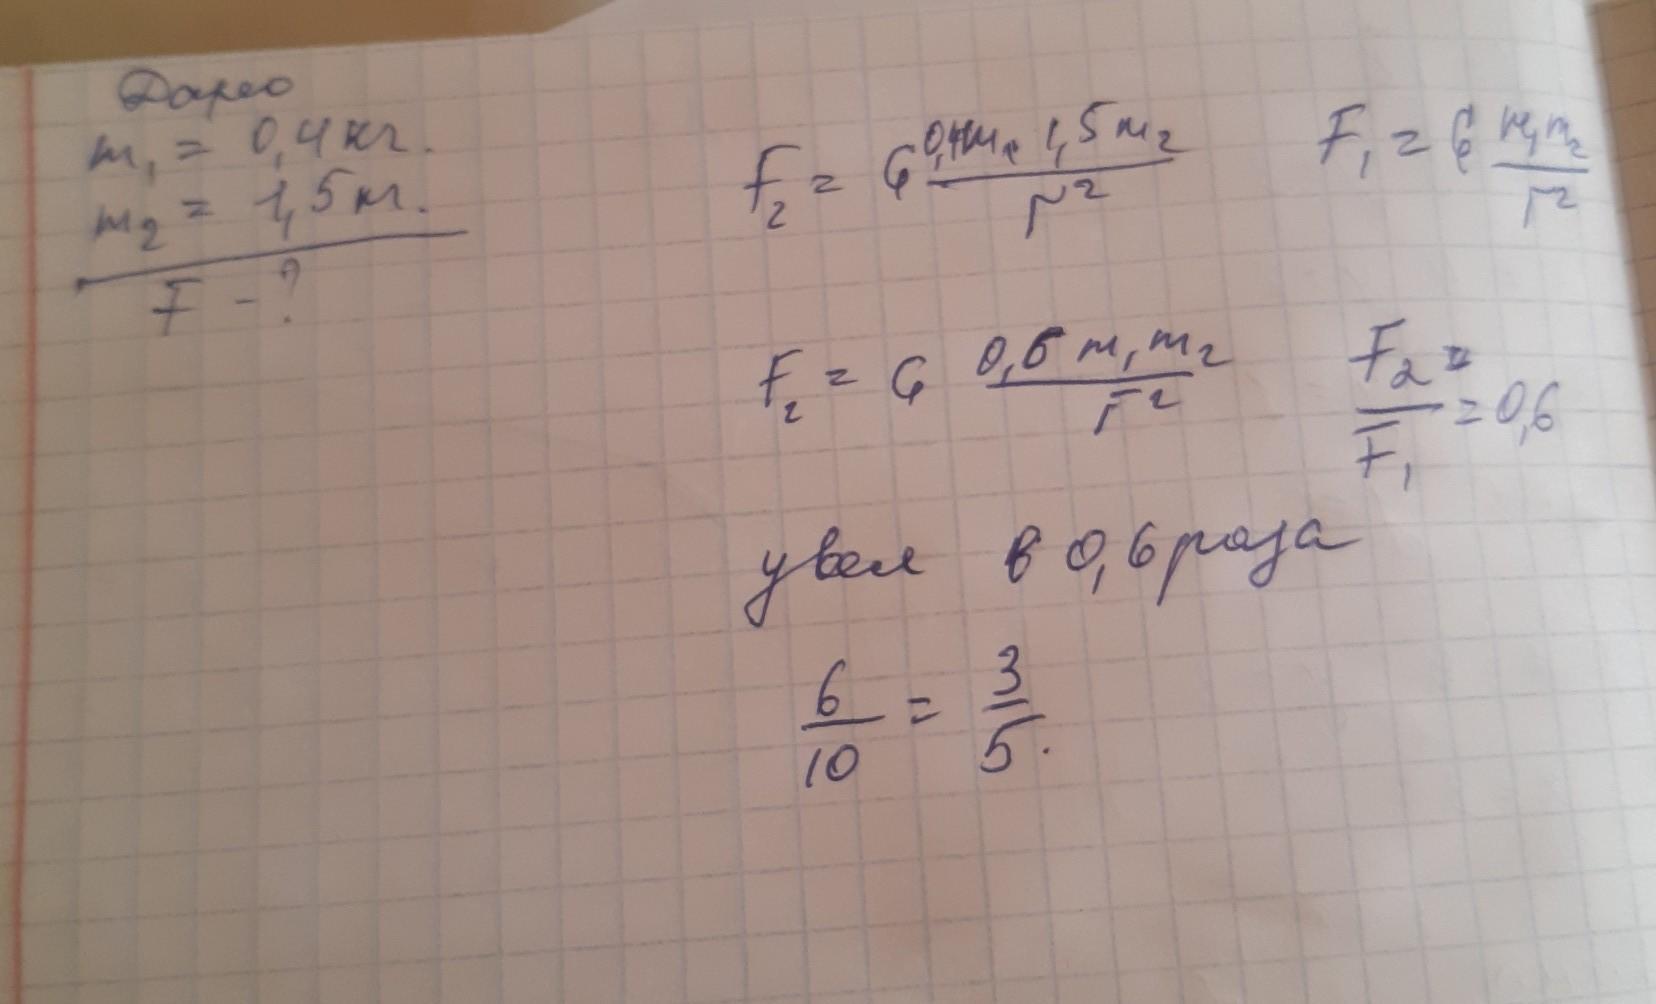 Дано
m₁ = 0,4 кг.
m₂ = 1,5 кг.
F - ?
F₂ = G 0,4m₁ 1,5m₂ / r²
F₁ = G m₁m₂ / r²
F₂ = G 0,6 m₁m₂ / r²
F₂ = / F₁ = 0,6
увел в 0,6 раза
6/10 = 3/5.